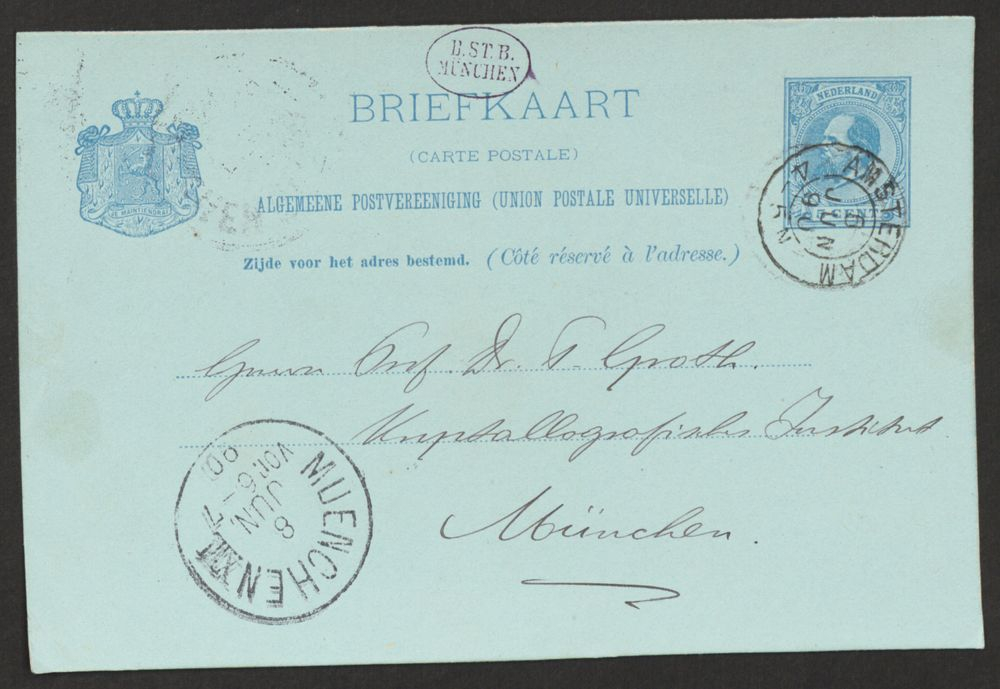 B. ST. B.
MÜNCHEN
BRIEFKAART
(CARTE POSTALE)
ALGEMEENE POSTVEREENIGING (UNION POSTALE UNIVERSELLE)
Zijde voor het adres bestemd. (Côté réservé à l'adresse.)
JE MAINTIENDRAI
NEDERLAND
5 CENT
AMSTERDAM
6
JUN
90
Herrn Prof. Dr. P. Groth.
Krystallografisches Institut
München.
MUENCHEN
8
JUN.
VOR 6-7
90